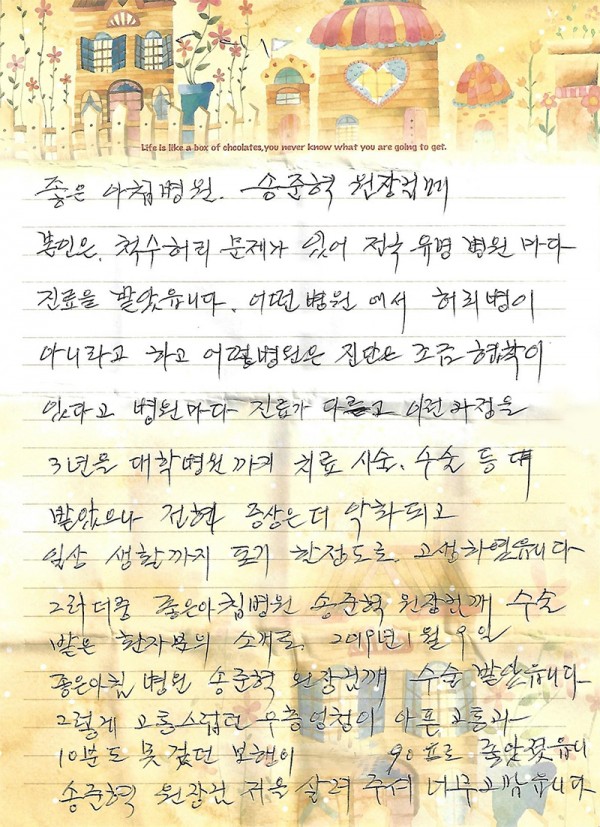 Life is like a box of chcolates,you never know what you are going to get.
좋은 아침병원. 송준혁 원장님께
본인은, 척수허리 문제가 있어 전국 유명 병원 마다
진료을 받았읍니다. 어떤병원 에서 허리병이
아니라고 하고 어떤병원은 진단은 조금 협착이
있다고 병원마다 진료가 다르고 이런과정을
3년을 대학병원까지 치료 시술, 수술 등
받았으나 전혀 증상은더 악화되고
일상 생활까지 포기 한정도로, 고생하였읍니다
그러더중 좋은아침병원 송준혁 원장님깨 수술
받은 환자분의 소개로, 2019년 1월 9일
좋은아침 병원 송준혁 원장님깨 수술 받았읍니다
그렇게 고통스럽던 엉청이 아픈고통과
10분도 못걷던 보행이 90프로 좋아졌읍니
송준혁 원장님 저을 살려 주셔 너무고맙습니다